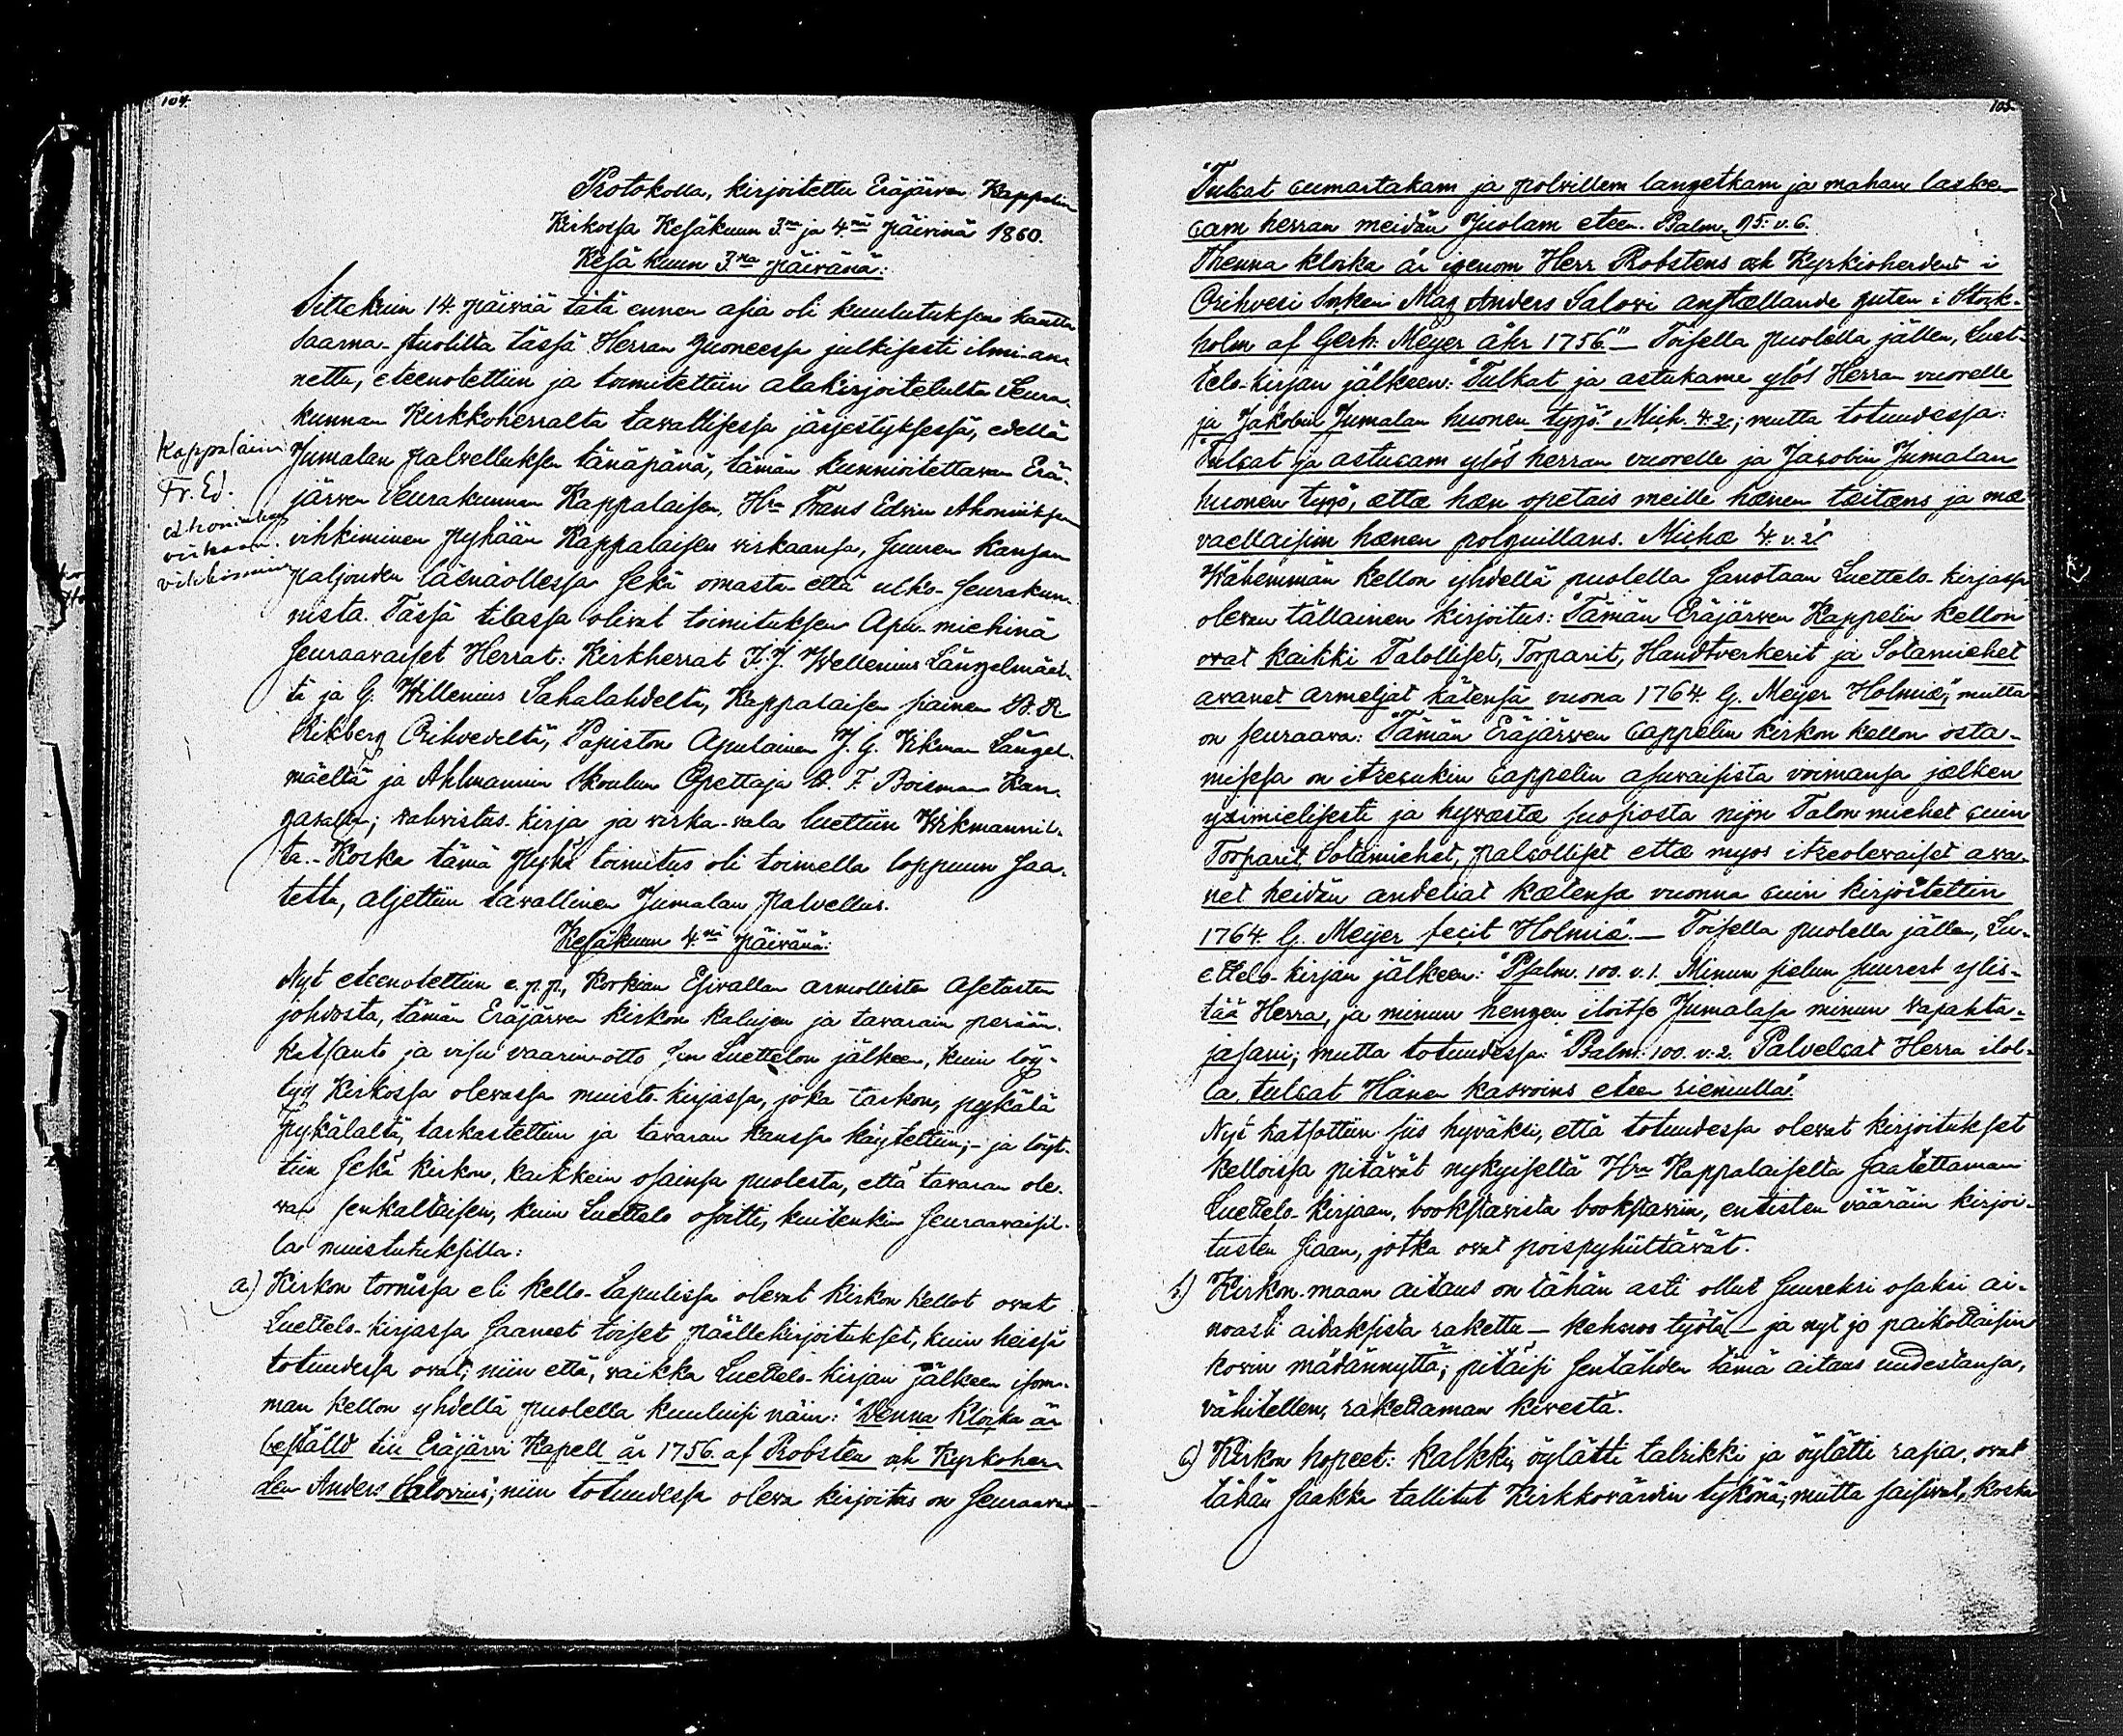 104.
Protokolla, kirjoitettu Eräjärven Kappelin
Kirkossa Kesäkuun 3na ja 4nä päivinä 1860.
Kesäkuun 3na päivänä:
Sittekuin 14 päivää tätä ennen asia oli kuulutuksen kautta
saarna-stuolilta tässä Herran Huoneessa julkisesti ilmi-an-
nettu, eteenotettiin ja toimitettiin alakirjoitetulta Seura-
kunnan Kirkkoherralta tavallisessa järjestyksessä, edellä
Jumalan palvelluksen tänäpänä, tämän kunnioitettavan Erä-
järven Seurakunnan Kappalaisen, Hra Frans Edvin Ahoniuksen
vihkiminen pyhään Kappalaisen virkaansa, suuren kansan
paljouden läsnäollessa sekä omasta että ulko-seurakun-
nista. Tässä tilassa olivat toimituksen Apu-miehinä
seuraavaiset Herrat: Kirkherrat F. J. Wellenius Längelmäel-
tä ja G. Willenius Sahalahdelta, Kappalaisen siainen
Orihvedeltä, Papiston Apulainen J. G. Vikman Längel-
mäeltä ja Ahlmannin Skoulun Opettaja A. F. Boisman Kan-
gasalta; vahvistus-kirja ja virka-vala luettiin Wikmannil-
ta. - Koska tämä pyhä toimitus oli toimella loppuun saa-
tettu, aljettiin tavallinen Jumalan palvellus.
Kappalainen
Fr. Ed.
Ahoniuksen
virkaan
vihkiminen
Kesäkuun 4nä päivänä:
Nyt eteenotettiin e. p. p., Korkian Esivallan armollisten Asetusten
johdosta, tämän Eräjärven kirkon kalujen ja tavarain perään-
katsanto ja visu vaarin-otto sen Luettelon jälkeen, kuin löy-
tyy Kirkossa olevassa muisto-kirjassa, joka tarkon, pykälä
pykälältä, tarkastettiin ja tavaran kanssa käytettiin; - ja löyt-
tiin sekä kirkon, kaikkein osainsa puolesta, että tavaran ole-
van senkaltaisen, kuin Luettelo osoitti, kuitenkin seuraavaisil-
la muistutuksilla:
a.) Kirkon tornissa eli kello-tapulissa olevat kirkon kellot ovat
Luettelo-kirjassa saaneet toiset päällekirjoitukset, kuin heissä
totuudessa ovat; niin että, vaikka Luettelo-kirjan jälkeen isom-
man kellon yhdellä puolella kuuluisi näin: "Denna Klocka är
beställd till Eräjärvi Kapell år 1756 af Probsten och Kyrkoher-
den Anders Salovius"; niin totuudessa oleva kirjoitus on seuraava:
105.
"Tulcat cumartakam ja polvillem langetkam ja mahan laske-
cam herran meidän Juolam eteen. Psalm. 95. v. 6.
Thenna klocka är igenom Herr Probstens och Kyrkioherdens i
Orihvesi Socken Mag. Anders Salovi anstællande guten i Stock-
holm af Gerh. Meyer åhr 1756" - Toisella puolella jällen, Luet-
telo-kirjan jälkeen: "Tulkat ja astukame ylös Herran vuorelle
ja Jakobin Jumalan huonen tygö." Mich. 4: 2; mutta totuudessa:
"Tulcat ja astucam ylös herran vuorelle ja Jacobin Jumalan
huonen tygö, ættæ hæn opetais meille hænen tæitæns ja mæ
vaellaisim hænen polguillans. Michæ 4. v. 2."
Wähemmän kellon yhdellä puolella sanotaan Luettelo-kirjassa
olevan tällainen kirjoitus: "Tämän Eräjärven Kappelin kellon
ovat kaikki Talolliset, Torparit, Handtverkerit ja Sotamiehet
avanet armeljat kätensä vuona 1764. G. Meyer Holmiæ," mutta
on seuraava: "Tämän Eräjärven Cappelin kirkon kellon osta-
misesa on itzecukin Cappelin asuvaisista voimansa jælken
yximielisesti ja hyvæstæ suosiosta nijn Talon miehet cuin
Torparit, Sotamiehet, palcolliset ettæ myos itzeolevaiset ava-
net heidän andeliat kætensä vuonna cuin kirjoitettin
1764. G. Meijer fecit Holmiæ". - Toisella puolella jällen, Lu-
ettelo-kirjan jälkeen: "Psalm. 100. v. 1. Minun sielun suurest ylis-
tää Herra, ja minun hengen iloitse Jumalasa minun vapahta-
jasani; mutta totuudessa: "Psalm: 100. v. 2. Palvelcat Herra ilol-
la, tulcat Hänen kasvoins eteen riemulla."
Nyt katsottiin siis hyväksi, että totuudessa olevat kirjoitukset
kelloissa pitävät nykyiseltä Hra Kappalaiselta saatettamaan
Luettelo-kirjaan, bookstavista bookstaviin, entisten vääräin kirjoi-
tusten siaan, jotka ovat poispyhittävät.
b.) Kirkon-maan aitaus on tähän asti ollut suureksi osaksi ai-
noasti aidaksista rakettu - kehnoo työtä - ja nyt jo paikottaisin
kovin mädännyttä; pitäisi sentähden tämä aitaus uudestansa,
vähitellen, rakettaman kivestä.
c.) Kirkon hopeet: kalkki, öylätti talrikki ja öylätti rasia, ovat
tähän saakka tallitut Kirkkovärdin tykönä; mutta saisivat, koska